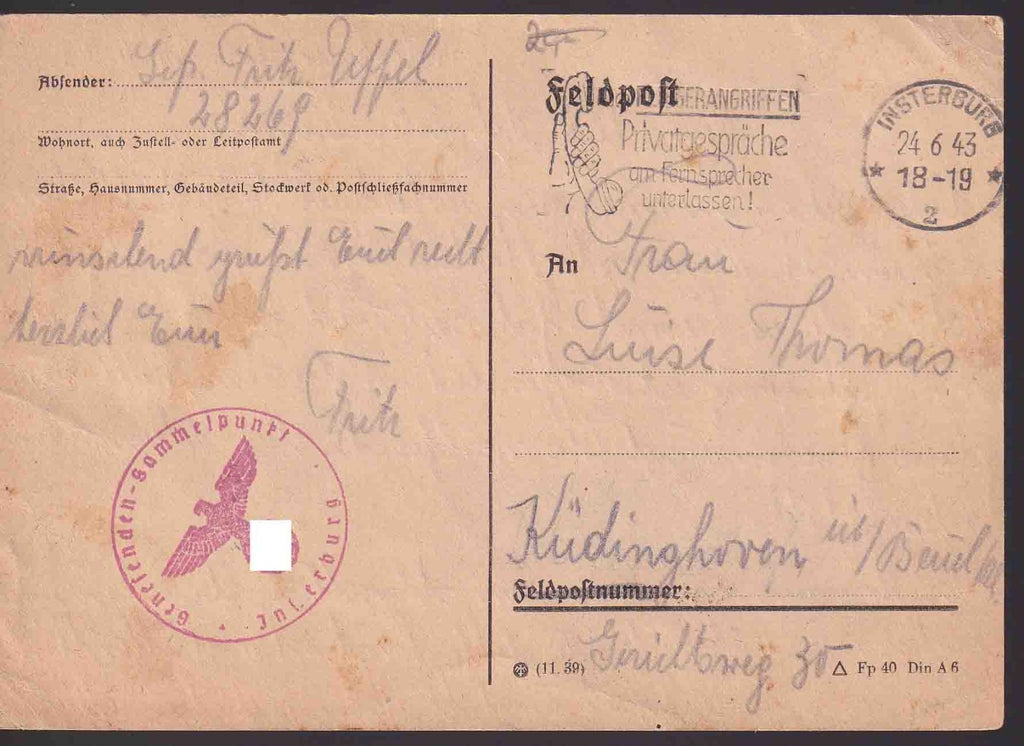 Absender: Gefr. Fritz Uffel
28269
Wohnort, auch Zustell- oder Leitpostamt
Straße, Hausnummer, Gebäudeteil, Stockwerk od. Postschließfachnummer
wünschend grüßt Euch recht
herzlich Euer
Fritz
Genesenden-Sammelpunkt
Insterburg
Feldpost
GERANGRIFFEN
Privatgespräche
am Fernsprecher
unterlassen!
INSTERBURG
24 6 43
18-19
2
An Frau
Luise Thomas
Küdinghoven üb/Beuel
Feldpostnummer:
Gerichtsweg 30
(11. 39)
Fp 40 Din A 6